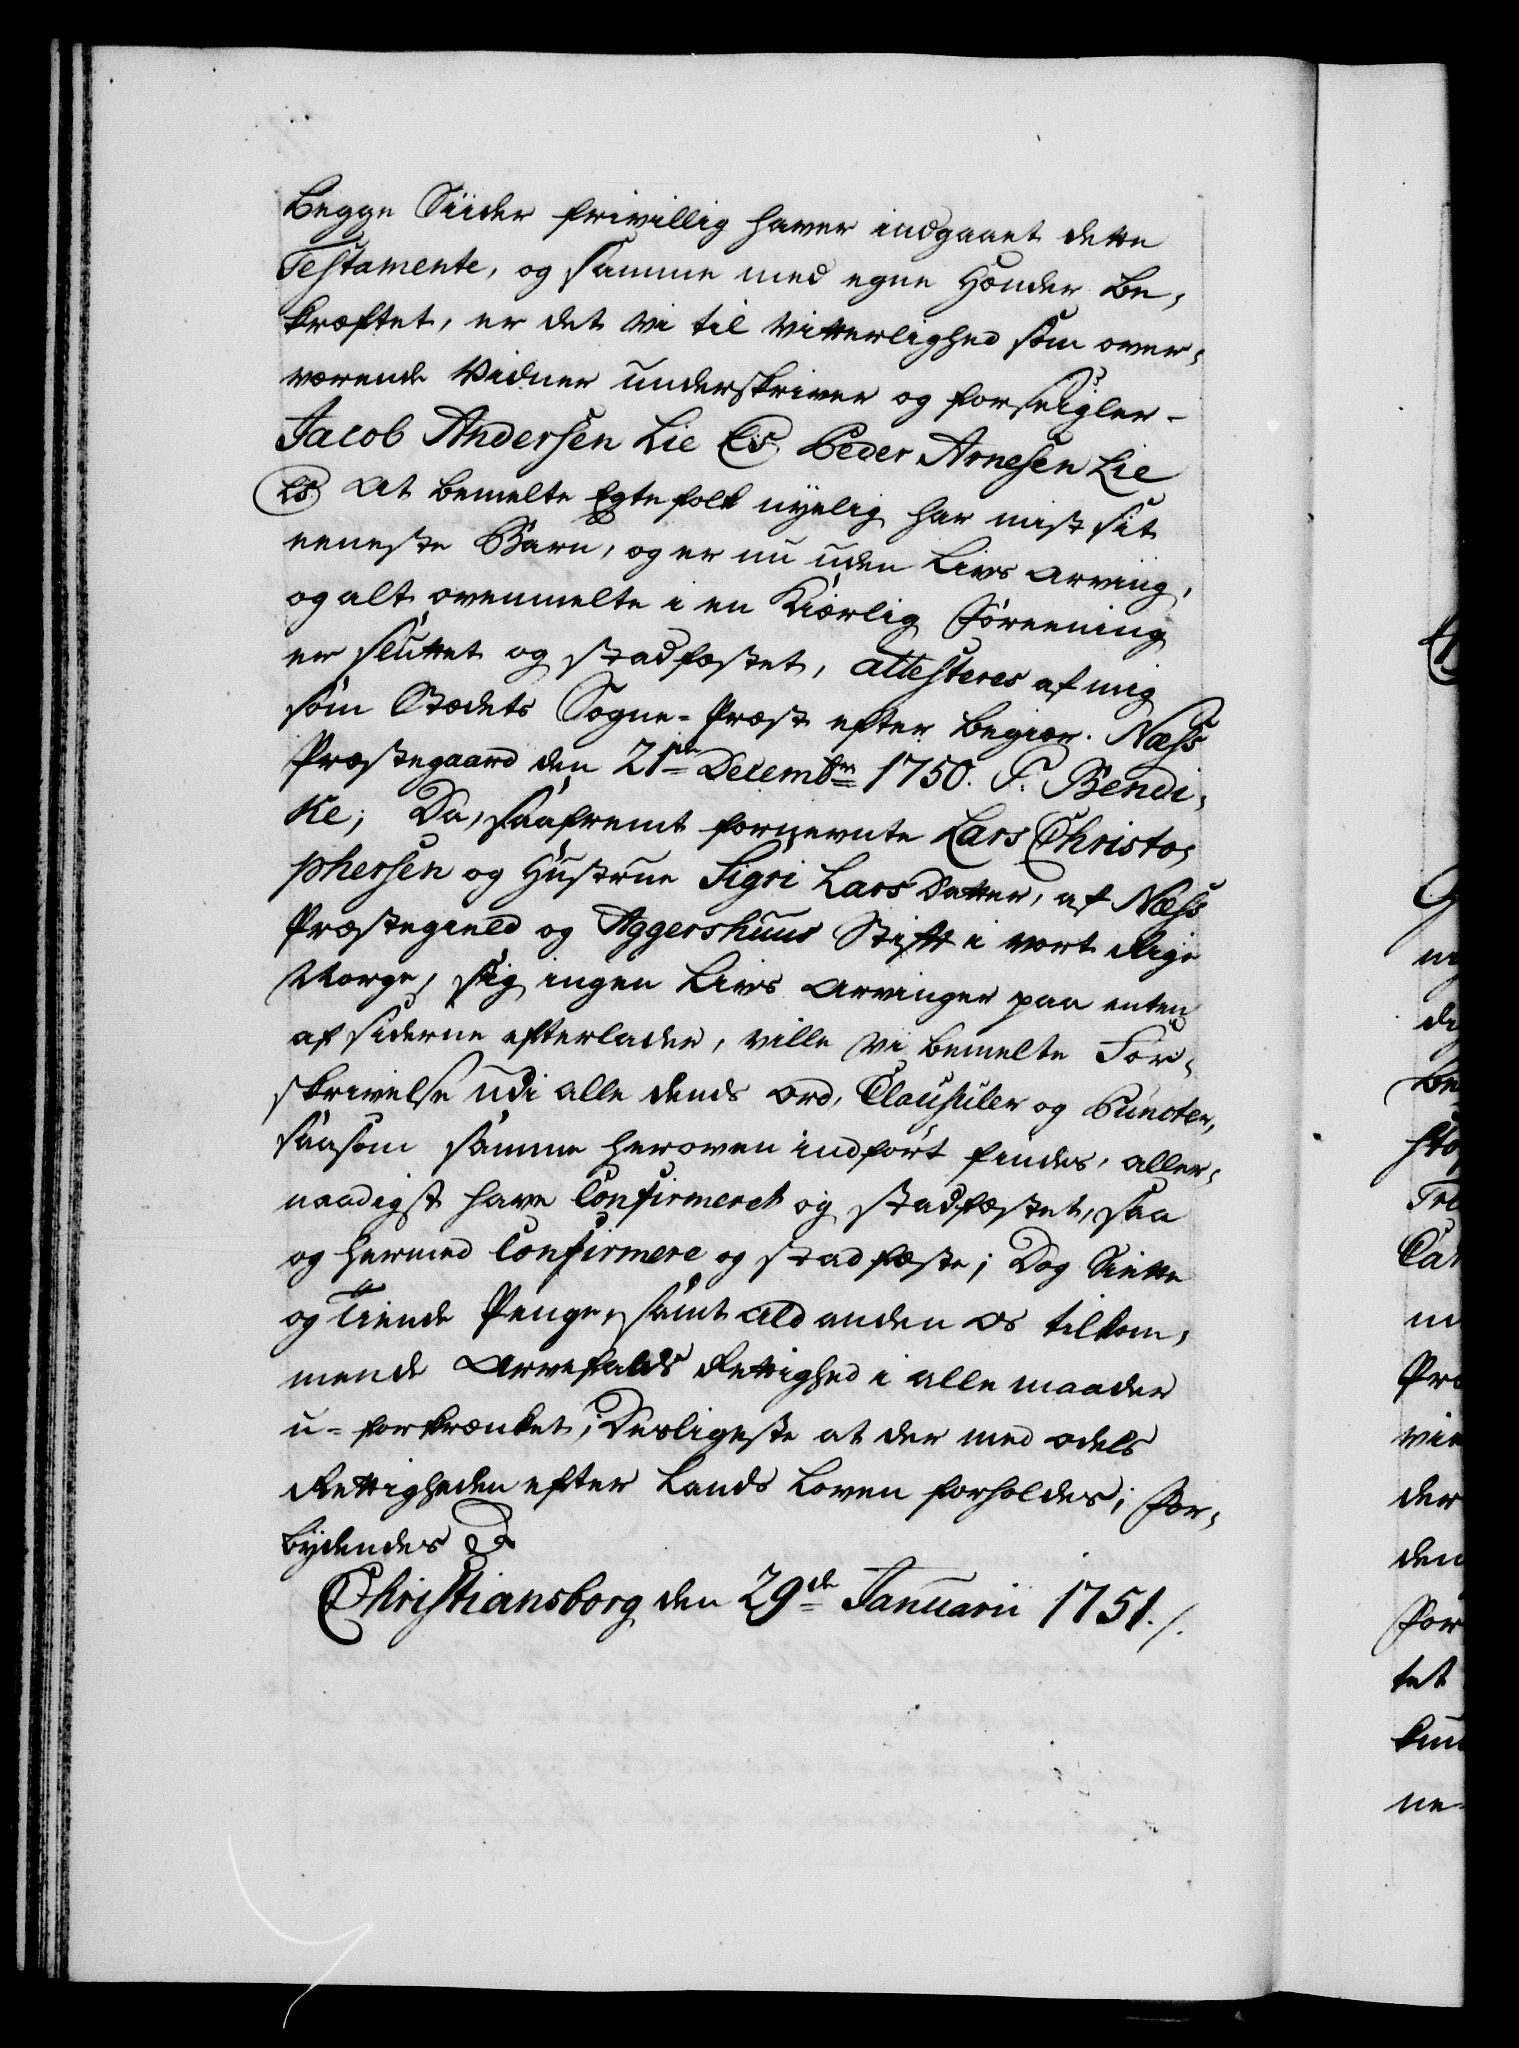 Begge Siider frivillig haver indgaaet dette
Testamente, og samme med egne Hænder be-
kræftet, er det vi til Vitterlighed som over-
værende Vidner underskriver og forseigler -
Jacob Andersen Lie LS. Peder Arnesen Lie
LS. At bemelte Egtefolk nyelig har mist sit
eeneste Barn, og er nu uden Livs Arving,
og alt ovenmelte i en Kiærlig Foreening
er sluttet og stadfæstet, attesteres af mig
som Stædets Sogne-Præst efter begiær. Næss
Præstegaard den 21de Decembr 1750. P. Bendi-
ke; Da, saafremt fornevnte Lars Christo-
phersen og Hustrue Sigri Lars Datter, af Næss
Præstegield og Aggershuus Stift i vort Rige
Norge, sig ingen Livs Arvinger paa enten
af siderne efterlader, ville Vi bemelte For-
skrivelse udi alle dends Ord, Clausuler og Puncter,
saasom samme heroven indført findes, aller-
naadigst have Confirmeret og stadfæstet, saa
og hermed Confirmere og stadfæste; Dog Siette
og Tiende Penge, samt ald anden Os tilkom-
mende Arvefalds Rettighed i alle maader
u-forkrænket; Desligeste at der med Odels
Rettigheden efter Lands Loven forholdes; For-
bydendes &
Christiansborg den 29de Januarii 1751./.